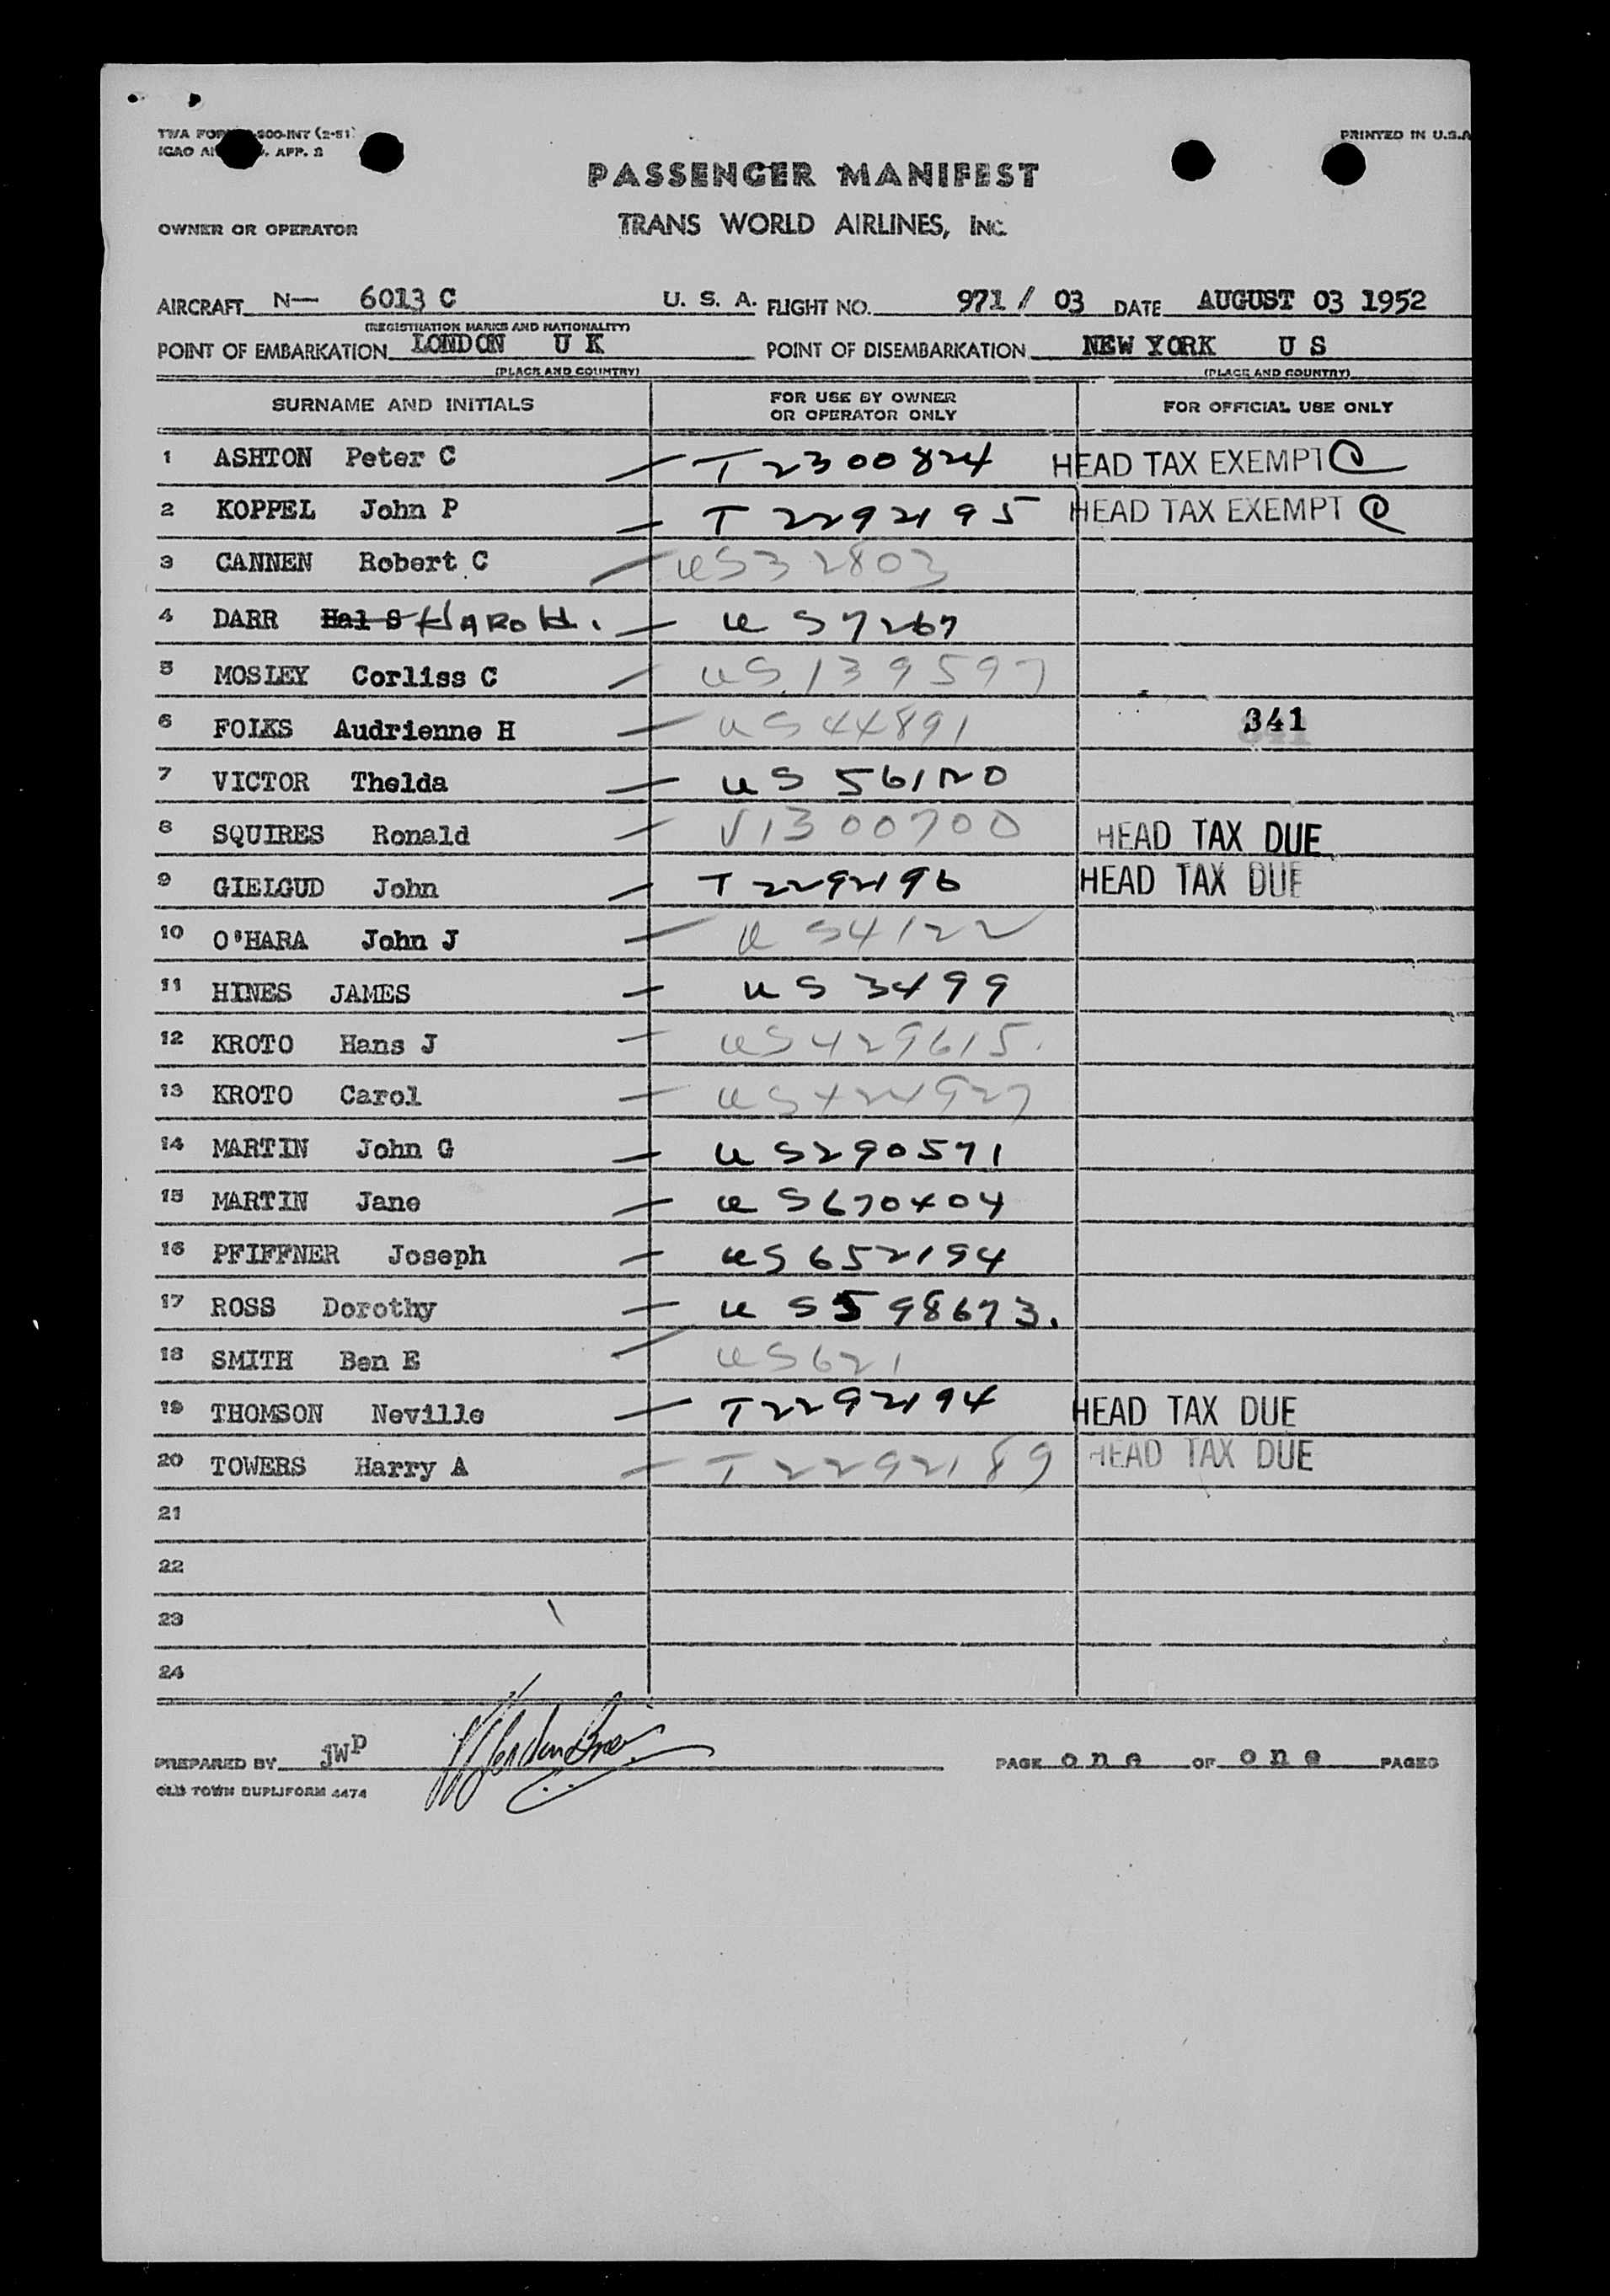 TWA FOR 300-INT (2-51)
ICAO AN . APP. 3
PRINTED IN U.S.A
PASSENGER MANIFEST
OWNER OR OPERATOR TRANS WORLD AIRLINES, INC.
AIRCRAFT N— 6013 C U. S. A. FLIGHT NO. 971 / 03 DATE AUGUST 03 1952
(REGISTRATION MARKS AND NATIONALITY)
POINT OF EMBARKATION LONDON U K POINT OF DISEMBARKATION NEW YORK U S
(PLACE AND COUNTRY) (PLACE AND COUNTRY)
SURNAME AND INITIALS FOR USE BY OWNER OR OPERATOR ONLY FOR OFFICIAL USE ONLY
1 ASHTON Peter C — T 2300824 HEAD TAX EXEMPT
2 KOPPEL John P — T 2292195 HEAD TAX EXEMPT
3 CANNEN Robert C — US32803
4 DARR Hal S HAROLd. — US7267
5 MOSLEY Corliss C — US139597
6 FOLKS Audrienne H — US44891 341
7 VICTOR Thelda — US 56120
8 SQUIRES Ronald — V1300700 HEAD TAX DUE
9 GIELGUD John — T2292196 HEAD TAX DUE
10 O'HARA John J — US4122
11 HINES JAMES — US 3499
12 KROTO Hans J — US429615.
13 KROTO Carol —
14 MARTIN John G — US290571
15 MARTIN Jane — US670404
16 PFIFFNER Joseph — US652194
17 ROSS Dorothy — US598673.
18 SMITH Ben E — US621
19 THOMSON Neville — T2292194 HEAD TAX DUE
20 TOWERS Harry A — T2292189 HEAD TAX DUE
21
22
23
24
PREPARED BY jWP PAGE one OF one PAGES
OLD TOWN DUPLIFORM 4474